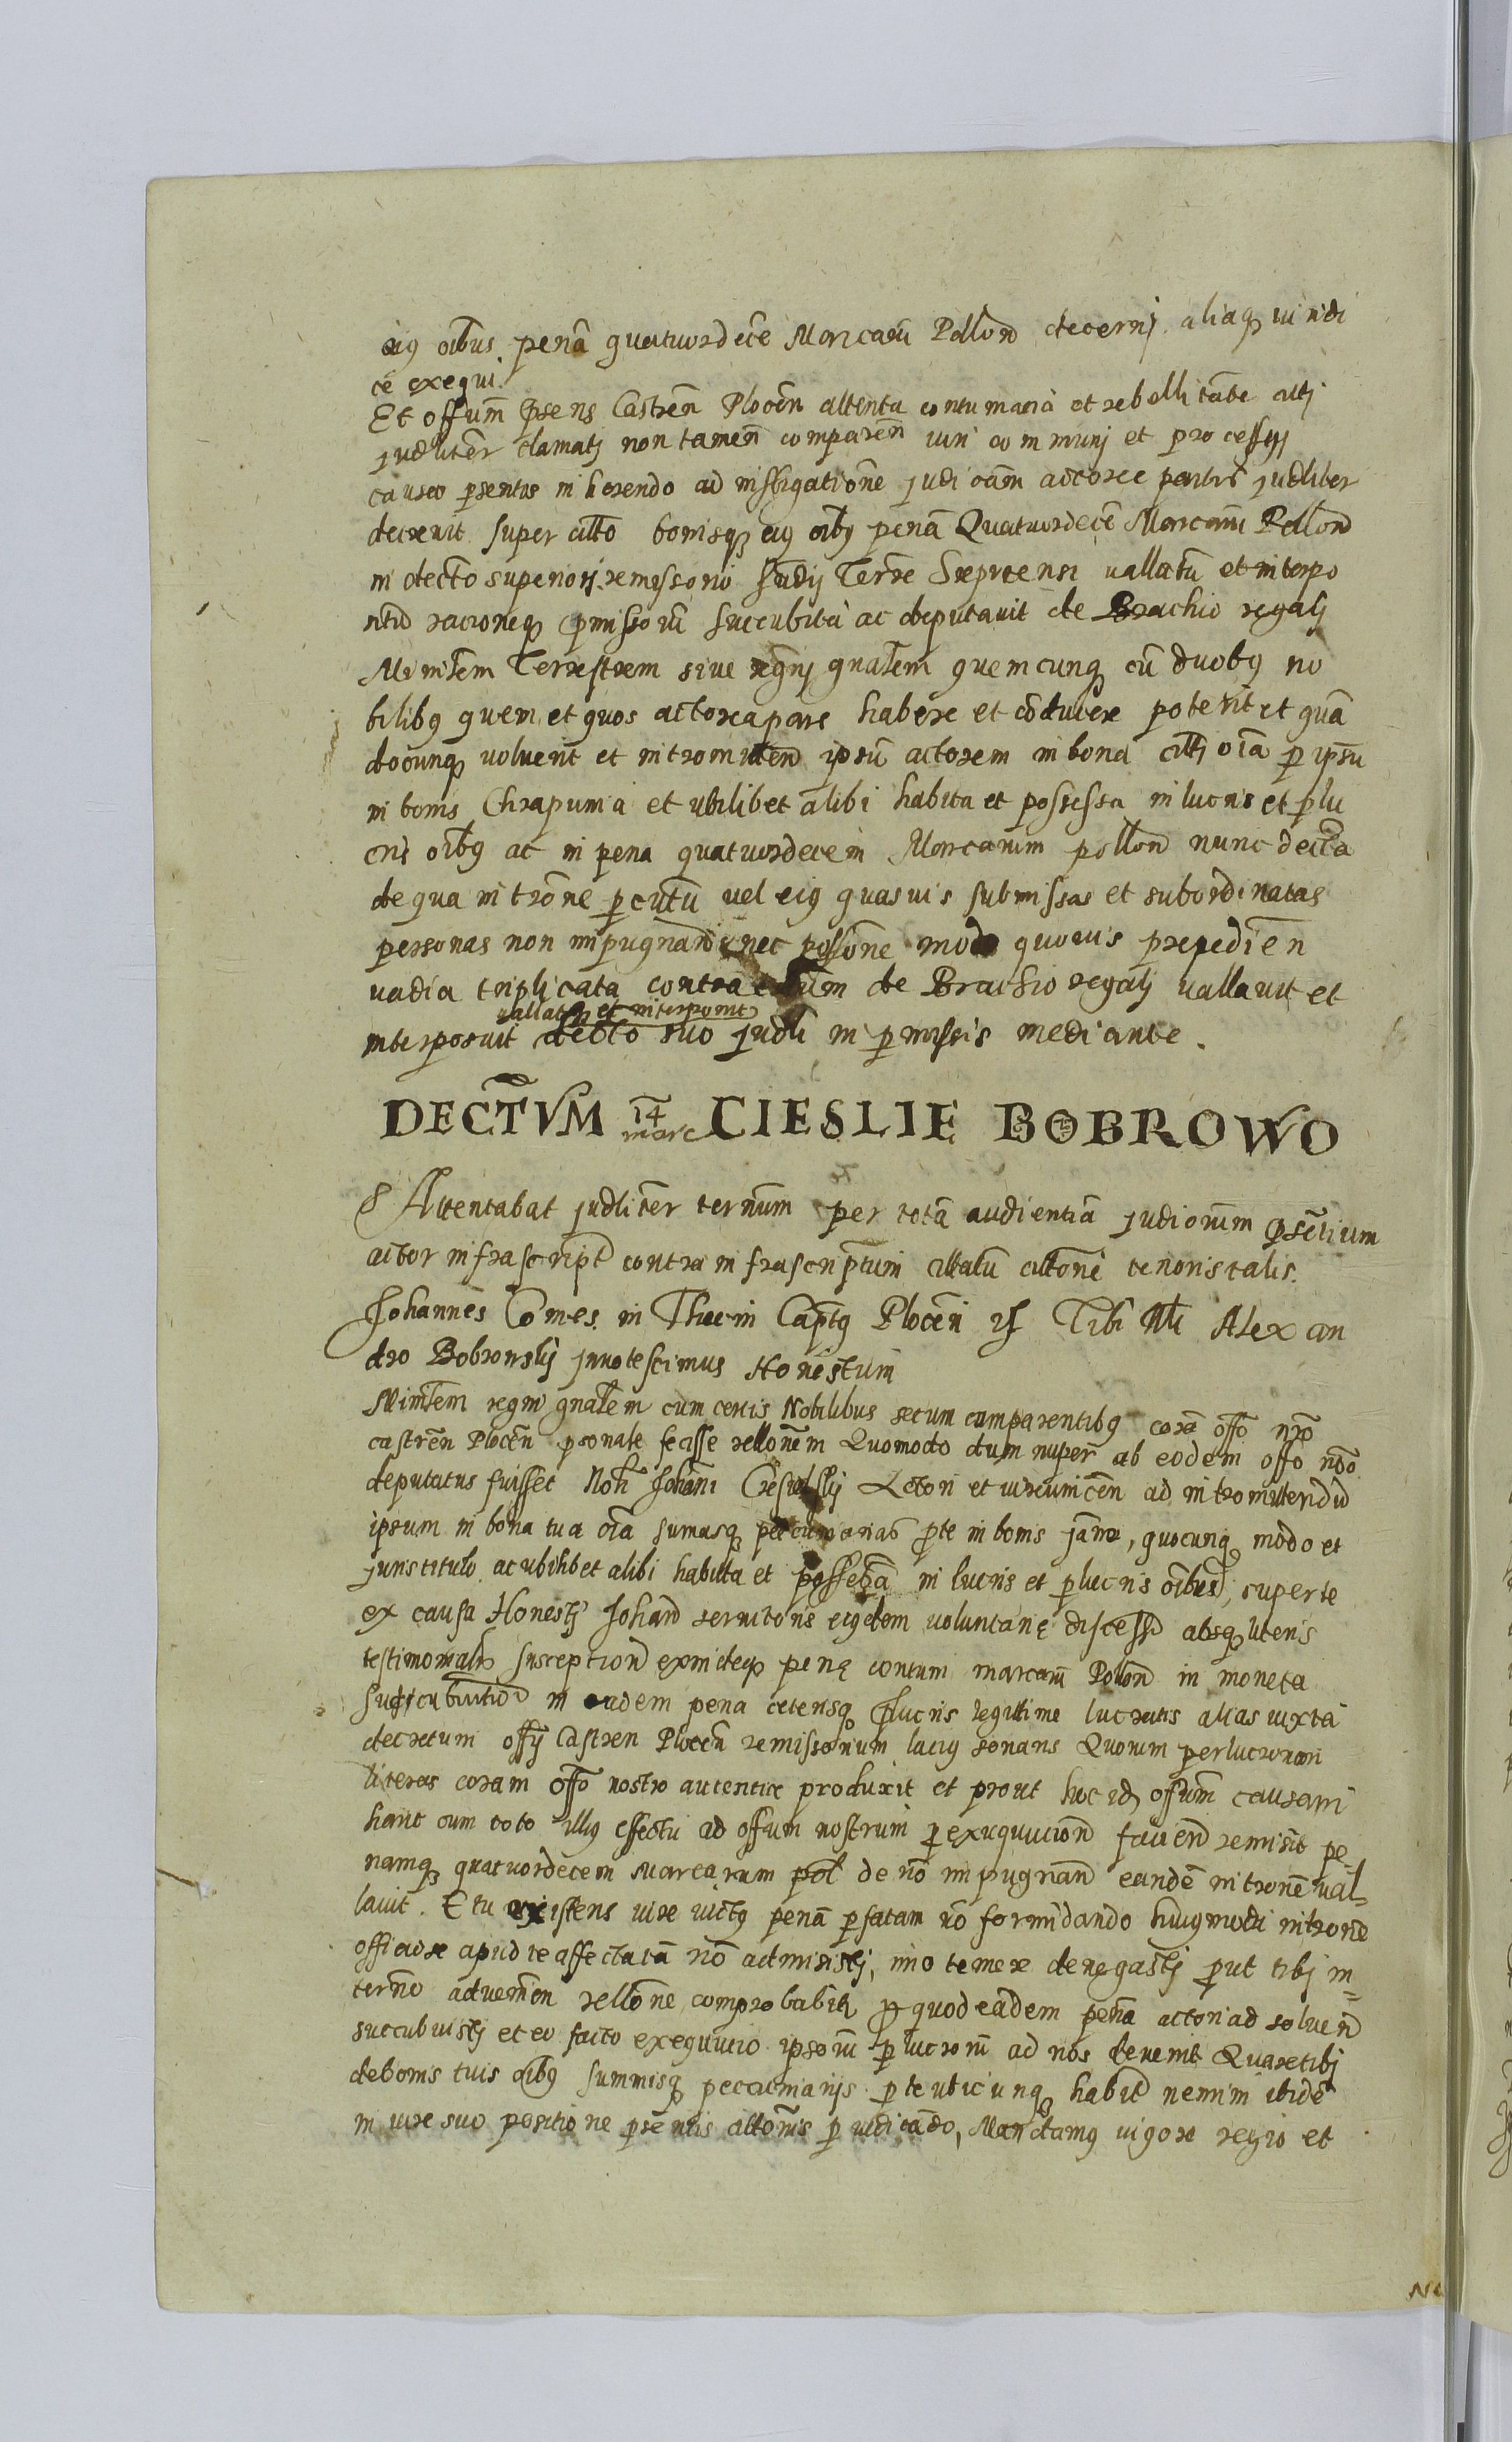 eiq oibus penã quatuordecẽ Marcarũ Pollon decerni aliaq iuridi
cẽ exequi.
Et offum p̃sens Castren̄ Plocen̄ attenta contumacia et rebellitate citti
judliter clamatj non tamen comparen̄ iuri communj et processuj
causæ p̄sentis inherendo ad instigationẽ judicam actoree partis judliter
decrevit super citto bonisq eiq oibq penã Quatuordecẽ Marcarũ Pollon
in decto superiorj remissorio Judij Terræ Srepcensi vallatũ et interpo
sitã racioneq p̄missorũ succubitã ac deputavit de Brachio regalj
Minrlem Terrestrem sive regnj gnalem quemcunq cũ duobq no
bilibq quem et quos actorea pars habere et cõducere poterit et quã
docunq voluerit et intromitten̄ ipsũ actorem in bona citti oĩa p ipsũ
in bonis Chrapunia et ubilibet alibi habita et possessa in lucris et p̄lu
cris oibq ac in pena quatuordecem Marcarum pollon nunc decta
de qua intrõne p cittũ vel eiq quasvis submissas et subordinatas
personas non impugnan̄ nec possione modo quovis prepedien̄
vadia triplicata contra citũm de Brachio regalj vallavit et
vallatq et interponit
interposuit decto suo judli in p̄missis mediante.
DECTVM 14 marc CIESLIE BOBROWO
Attentabat judliter ternum per totã audientiã judiorum p̄sentium
actor infrascript contra infrascriptum cittatũ cittone tenoris talis.
Johannes Comes in Thecin Captq Plocen̄ ij Tibi Nli Alexan
dro Bobrowskj jnnotescimus Honestum
Minrlem regni gnalem cum certis Nobilibus secum comparentibq corã offo nro
castren̄ Plocen̄ p̄sonale fecisse rellonem Quomodo dum nuper ab eodem offo nro
deputatus fuisset Nobi Johani Ciesielskj Actori et vireuincen̄ ad intromittendũ
ipsum in bona tua oĩa sumasq pecuniarias p̄ te in bonis jãnre, quocunq modo et
juris titulo ac ubilibet alibi habita et possessa in lucris et p̄lucris oibus, super te
ex causa Honestj Johan servitoris eiqdem voluntarię discessũ absq literis
testimonialib suscepcion exindeq penę centum marcarũ Pollon in moneta
succubuitid in eadem pena ceterisq p̄lucris legittime lucratis alias iuxta
decretum offij Castren Plocen̄ remissorium laciq sonans Quorum perlucrorum
literas coram offo nostro autentice produxit et prout huc idq offum causam
hanc cum toto illiq effectu ad offum nostrum p exequucion̄ facien̄ remisit pe-
namq quatuordecem marcarum pol de nõ impugnan̄ eandẽ intronẽ val-
lavit. Et tu existens iure victq penã p̄fatam nõ formidando huiqmodi intronẽ
officiose apud te affectatã nõ admisistj, imo temere denegastj p̄ut tibj in-
terno advenien rellone comprobabitr p quod eadem pena actori ad solven̄
succubuistj et eo facto exequucio ipsorũ p lucrorũ ad nos devenit Quare tibj
de bonis tuis oibq summisq pecuniarijs p te ubicunq habit nemini ibide
in iure suo positione p̄sentis cittonis p iudicãdo, Mandamq vigore regio et